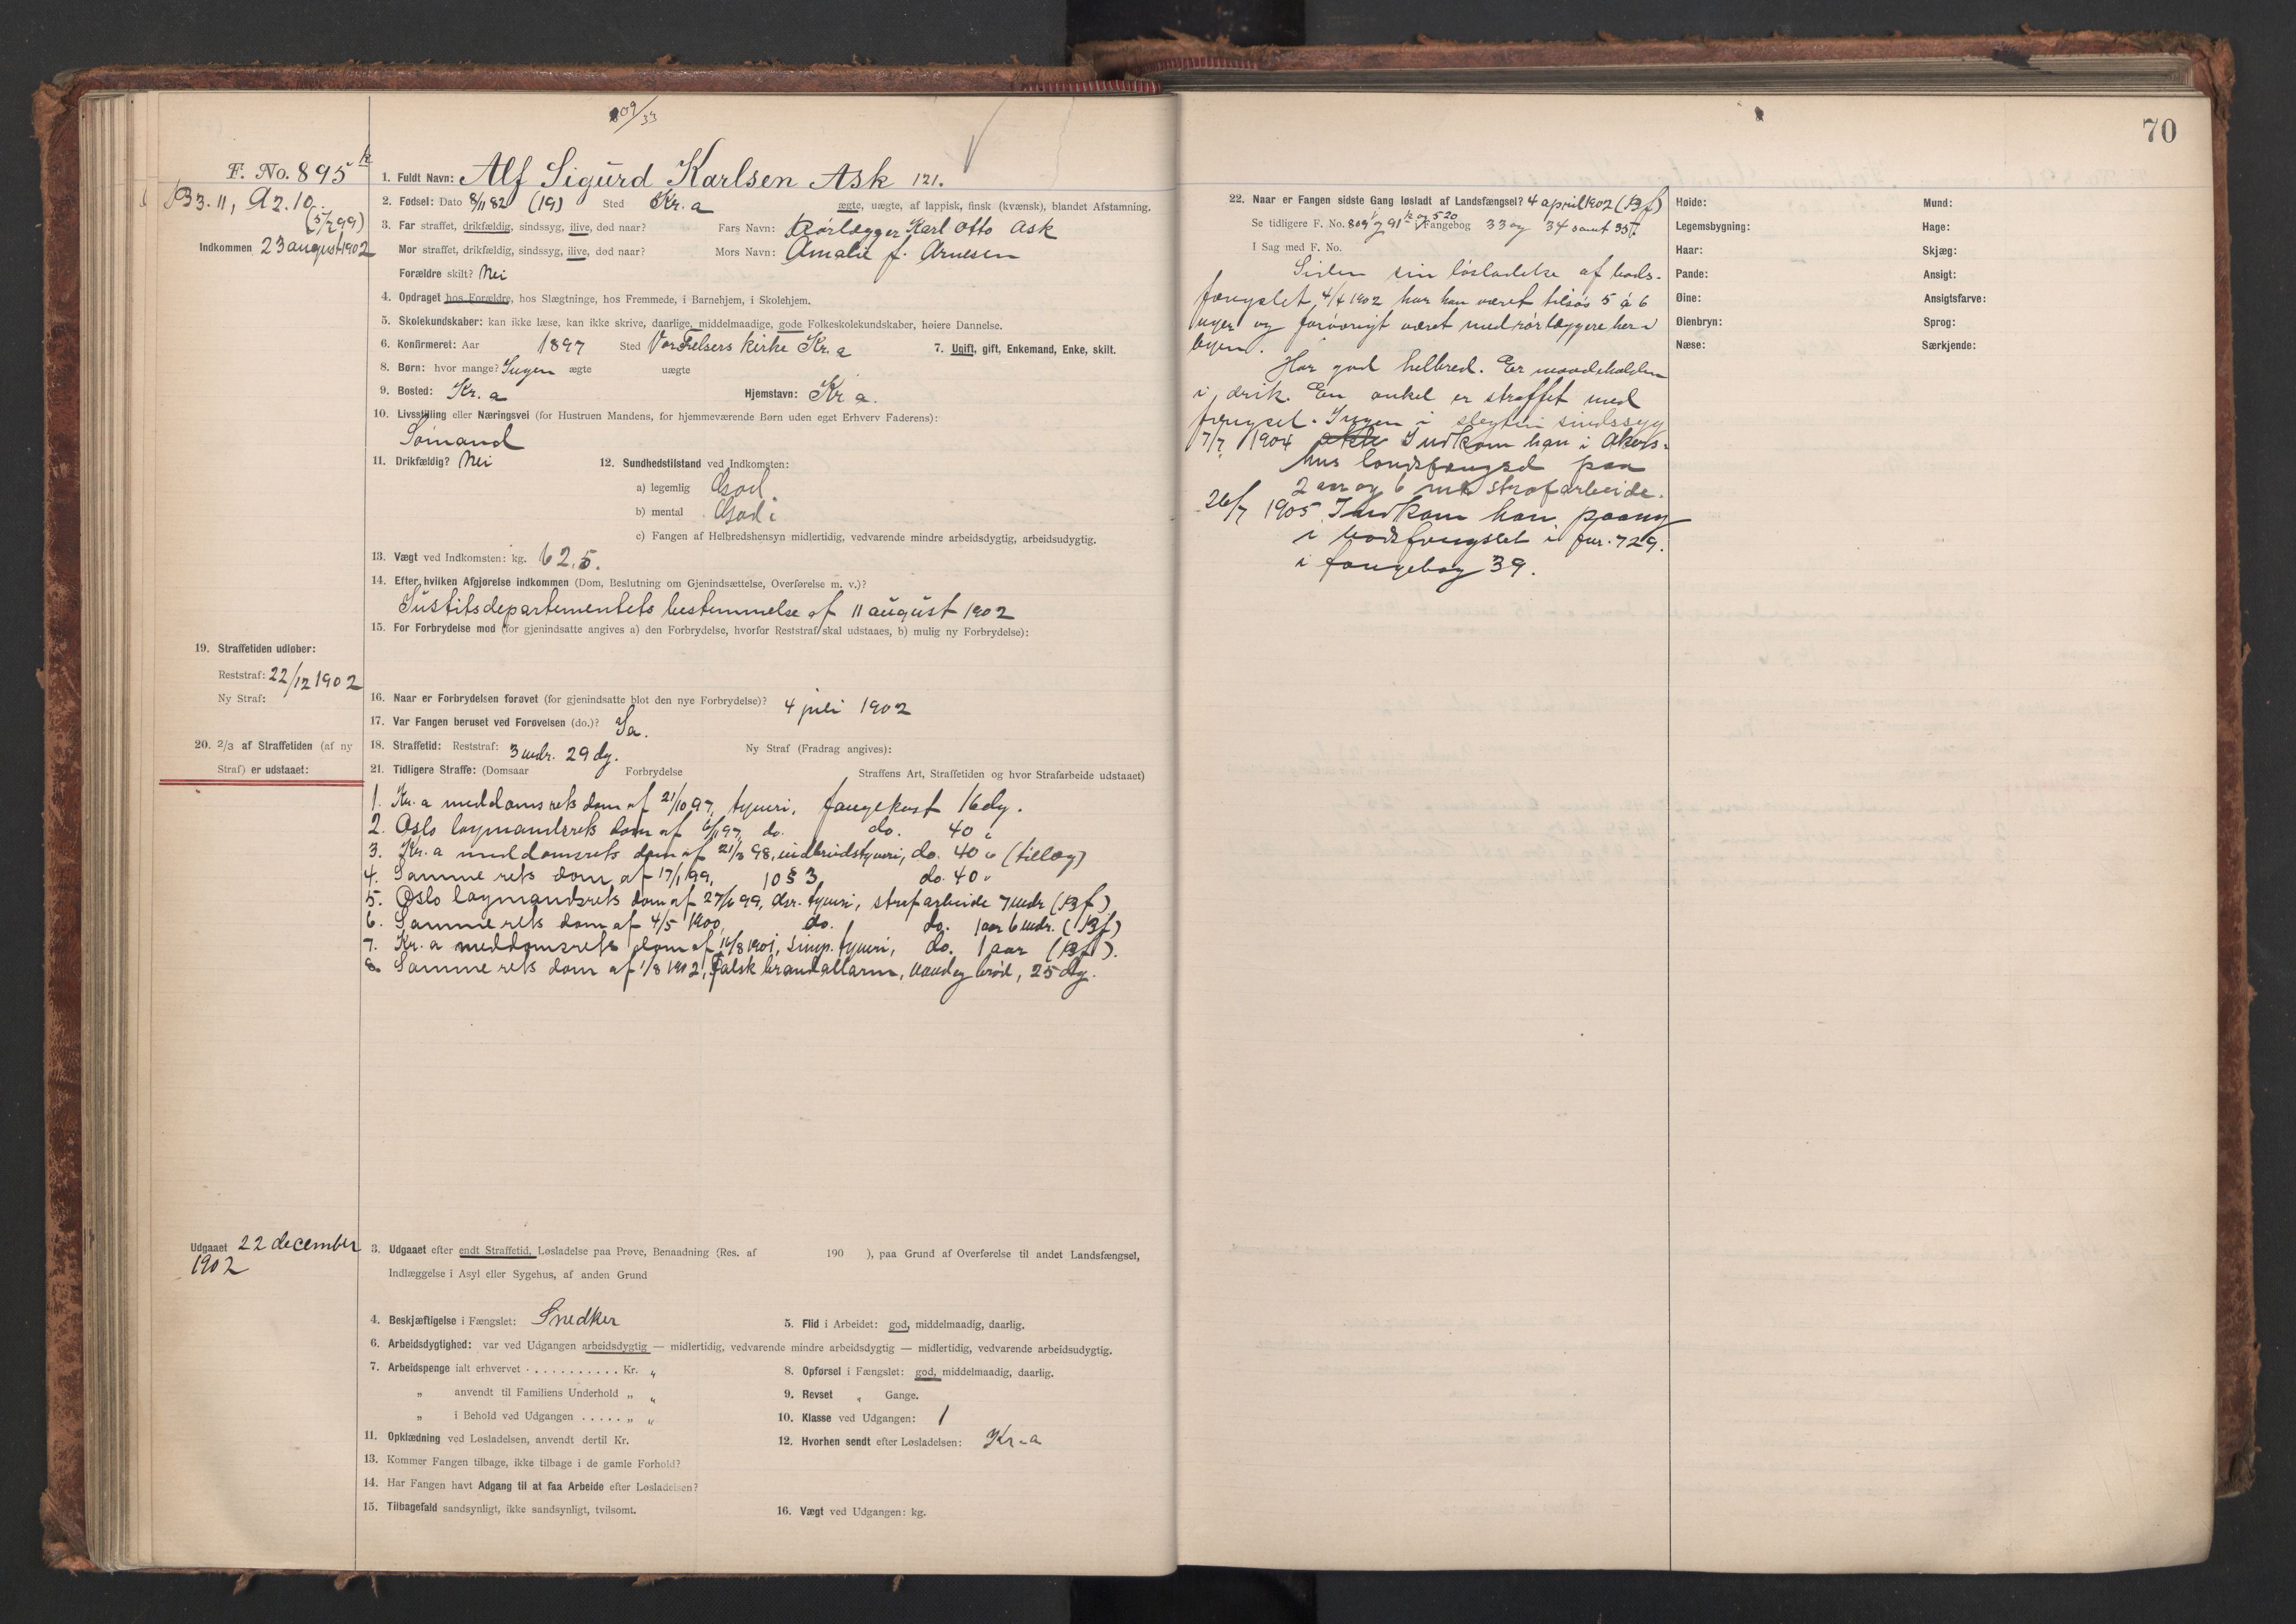 809/33
70
F. No. 895
B3.11, A2.10.
(5/7 99)
Indkommen 23 august 1902
1. Fuldt Navn: Alf Sigurd Karlsen Ask 121.
2. Fødsel: Dato 8/11 82 (19) Sted Kr.a ægte, uægte, af lappisk, finsk (kvænsk), blandet Afstamning.
3. Far straffet, drikfældig, sindssyg, ilive, død naar? Fars Navn: Rørlægger Karl Otto Ask
Mor straffet, drikfældig, sindssyg, ilive, død naar? Mors Navn: Amalie f. Arnesen
Forældre skilt? Nei
4. Opdraget hos Forældre, hos Slægtninge, hos Fremmede, i Barnehjem, i Skolehjem.
5. Skolekundskaber: kan ikke læse, kan ikke skrive, daarlige, middelmaadige, gode Folkeskolekundskaber, høiere Dannelse.
6. Konfirmeret: Aar 1897 Sted Vor Frelsers kirke Kr.a 7. Ugift, gift, Enkemand, Enke, skilt.
8. Børn: hvor mange? Ingen ægte uægte
9. Bosted: Kr.a Hjemstavn: Kr a.
10. Livsstilling eller Næringsvei (for Hustruen Mandens, for hjemmeværende Børn uden eget Erhverv Faderens):
Sømand
11. Drikfældig? Nei 12. Sundhedstilstand ved Indkomsten:
a) legemlig God.
b) mental God.
c) Fangen af Helbredshensyn midlertidig, vedvarende mindre arbeidsdygtig, arbeidsudygtig.
13. Vægt ved Indkomsten: kg. 62,5.
14. Efter hvilken Afgjørelse indkommen (Dom, Beslutning om Gjenindsættelse, Overførelse m. v.)?
Justitsdepartementets bestemmelse af 11 august 1902
15. For Forbrydelse mod (for gjenindsatte angives a) den Forbrydelse, hvorfor Reststraf skal udstaaes, b) mulig ny Forbrydelse):
19. Straffetiden udløber:
Reststraf: 22/12 1902
Ny Straf:
16. Naar er Forbrydelsen forøvet (for gjenindsatte blot den nye Forbrydelse)? 4 juli 1902
17. Var Fangen beruset ved Forøvelsen (do.)? Ja.
20. 2/3 af Straffetiden (af ny
Straf) er udstaaet:
18. Straffetid: Reststraf: 3 mdr. 29 dg. Ny Straf (Fradrag angives):
21. Tidligere Straffe: (Domsaar Forbrydelse Straffens Art, Straffetiden og hvor Strafarbeide udstaaet)
1. Kr.a meddomsrets dom af 21/10 97, tyveri, fangekost 16 dg.
2. Oslo lagmandsrets dom af 6/11 97, do. do. 40 "
3. Kr.a meddomsrets dom af 21/3 98, indbrudstyveri, do. 40 " (tillæg)
4. Samme rets dom af 17/1 99, 10 § 3, do. 40 "
5. Oslo lagmandsrets dom af 27/6 99, gr. tyveri, strafarbeide 7 mdr (Bf)
6. Samme rets dom af 4/5 1900, do. do. 1 aar 6 mdr. (Bf)
7. Kr.a meddomsrets dom af 16/8 1901, simp. tyveri, do. 1 aar (Bf).
8. Samme rets dom af 1/8 1902, falsk brandallarm, vand og brød, 25 dg.
Udgaaet 22 december
1902
3. Udgaaet efter endt Straffetid, Løsladelse paa Prøve, Benaadning (Res. af 190 ), paa Grund af Overførelse til andet Landsfængsel,
Indlæggelse i Asyl eller Sygehus, af anden Grund
4. Beskjæftigelse i Fængslet: Snedker 5. Flid i Arbeidet: god, middelmaadig, daarlig.
6. Arbeidsdygtighed: var ved Udgangen arbeidsdygtig — midlertidig, vedvarende mindre arbeidsdygtig — midlertidig, vedvarende arbeidsudygtig.
7. Arbeidspenge ialt erhvervet . . . . . . . . . . . Kr. " 8. Opførsel i Fængslet: god, middelmaadig, daarlig.
„ anvendt til Familiens Underhold „ " 9. Revset " Gange.
„ i Behold ved Udgangen . . . . . „ " 10. Klasse ved Udgangen: 1
11. Opklædning ved Løsladelsen, anvendt dertil Kr. 12. Hvorhen sendt efter Løsladelsen: Kr-a
13. Kommer Fangen tilbage, ikke tilbage i de gamle Forhold?
14. Har Fangen havt Adgang til at faa Arbeide efter Løsladelsen?
15. Tilbagefald sandsynligt, ikke sandsynligt, tvilsomt. 16. Vægt ved Udgangen: kg.
22. Naar er Fangen sidste Gang løsladt af Landsfængsel? 4 april 1902 (Bf)
Se tidligere F. No. 809 og 91 og 520 i Fangebog 33 og 34 samt 35
I Sag med F. No.
Siden sin løsladelse af bods-
fængslet, 4/4 1902 har han været tilsøs 5 à 6
uger og forøvrigt været med rørlæggere her i
byen.
Har god helbred. Er maadeholden
i drik. En onkel er straffet med
fængsel. Ingen i slegten sindssyg
7/7 1904 Indkom han i Akers-
hus landsfængsel paa
2 aar og 6 mdr strafarbeide.
26/7 1905 Indkom han paany
i bodsfængslet i fnr. 729.
i fangebog 39.
Høide: Mund:
Legemsbygning: Hage:
Haar: Skjæg:
Pande: Ansigt:
Øine: Ansigtsfarve:
Øienbryn: Sprog:
Næse: Særkjende: